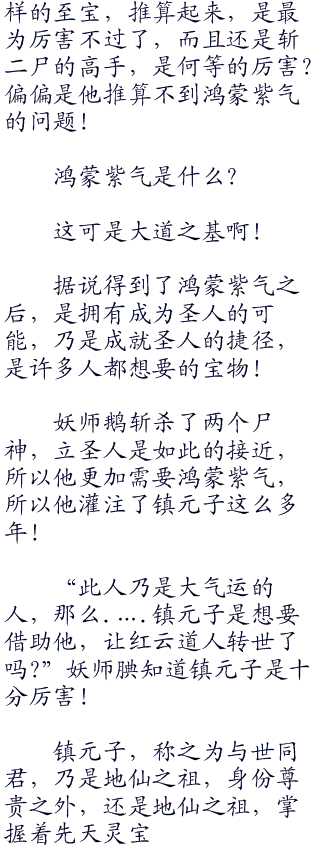 样的至宝，推算起来，是最
为厉害不过了，而且还是斩
二尸的高手，是何等的厉害？
偏偏是他推算不到鸿蒙紫气
的问题！
鸿蒙紫气是什么？
这可是大道之基啊！
据说得到了鸿蒙紫气之
后，是拥有成为圣人的可
能，乃是成就圣人的捷径，
是许多人都想要的宝物！
妖师鹅斩杀了两个尸
神，立圣人是如此的接近，
所以他更加需要鸿蒙紫气，
所以他灌注了镇元子这么多
年！
“此人乃是大气运的
人，那么．…．镇元子是想要
借助他，让红云道人转世了
吗？”妖师腆知道镇元子是十
分厉害！
镇元子，称之为与世同
君，乃是地仙之祖，身份尊
贵之外，还是地仙之祖，掌
握着先天灵宝